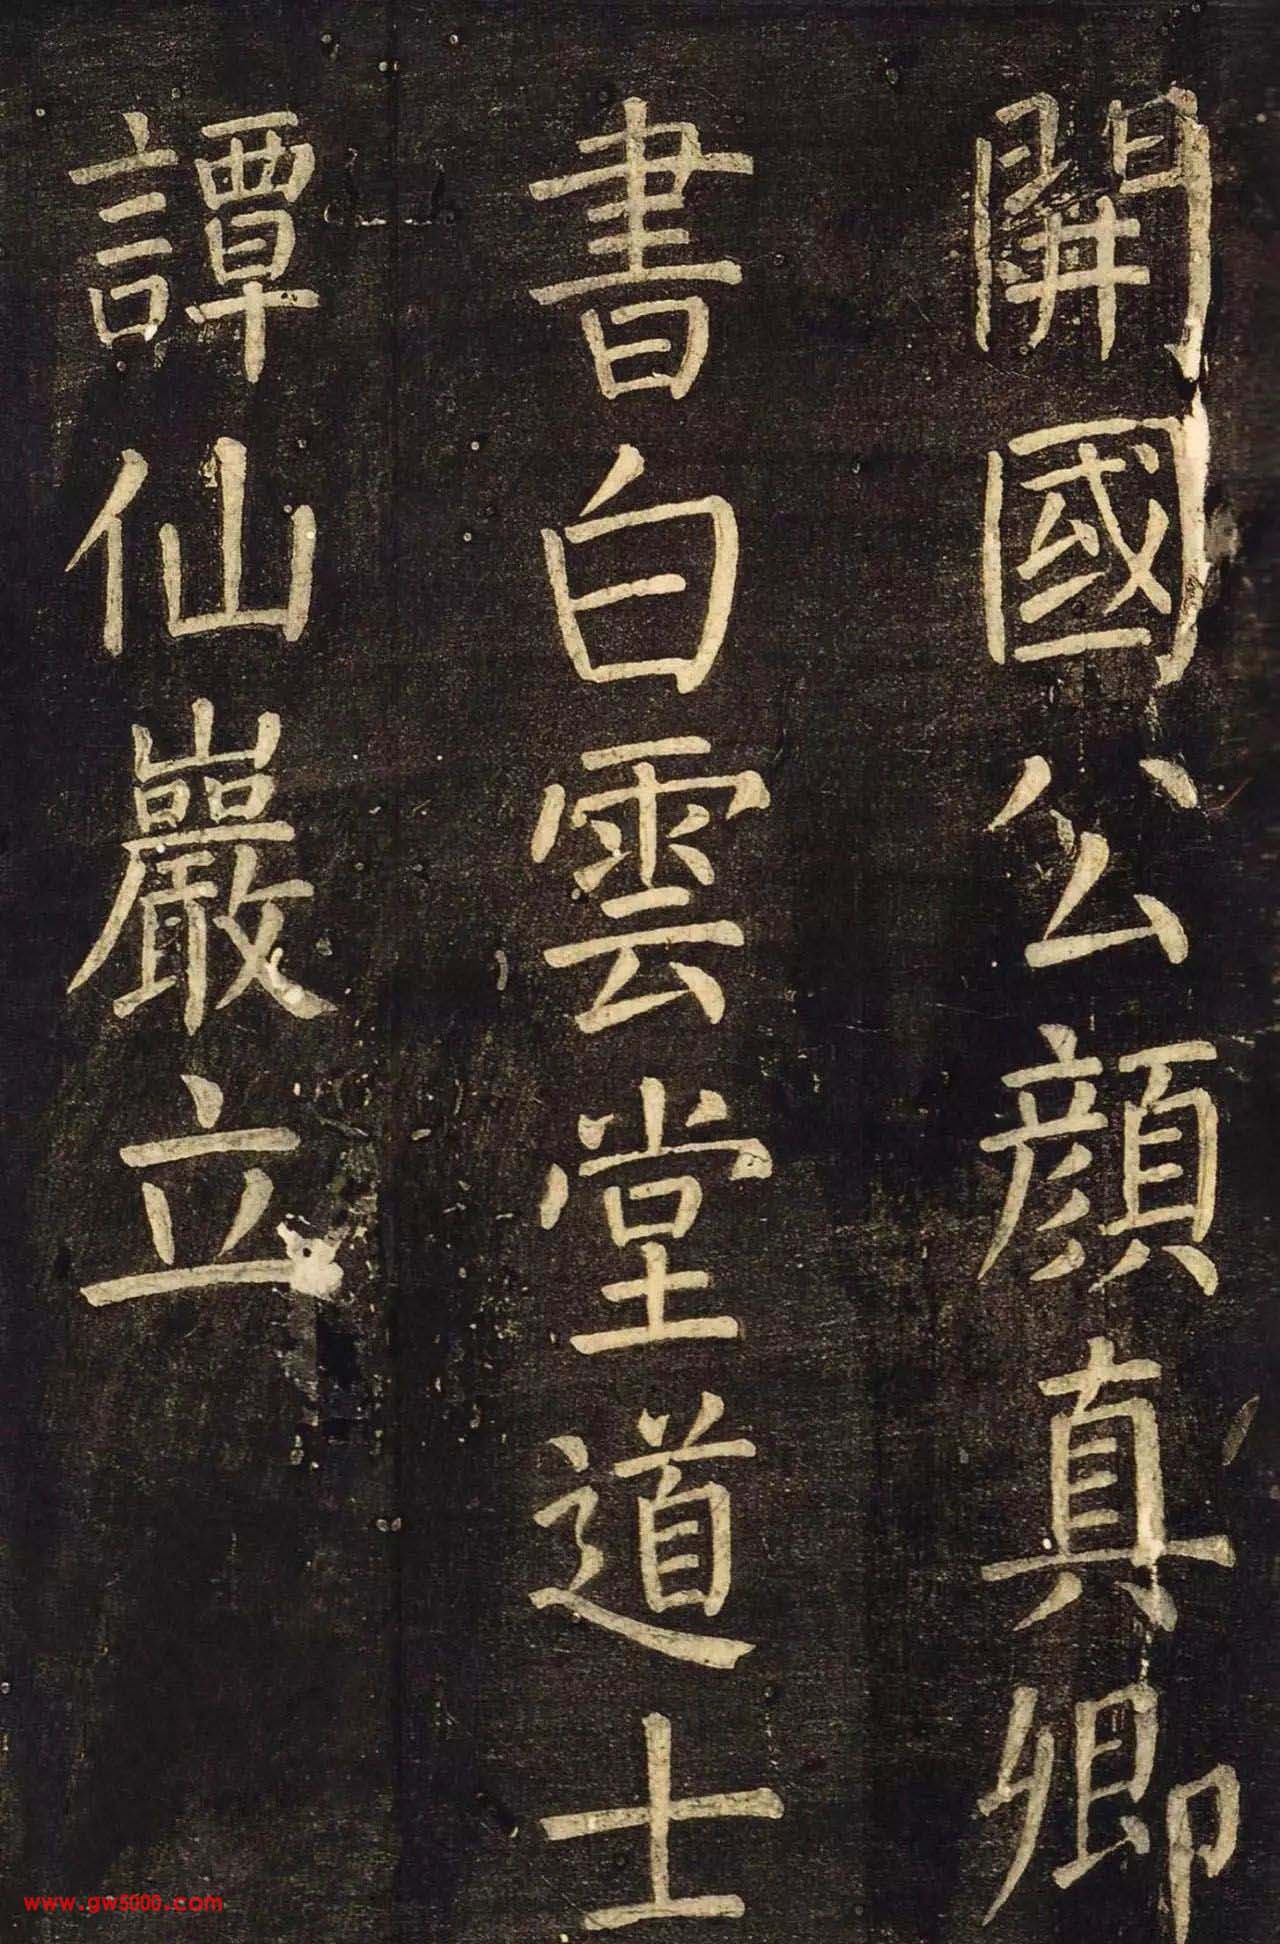 開國公顏真卿
書白雲堂道士
譚仙巖立
www.gw5000.com